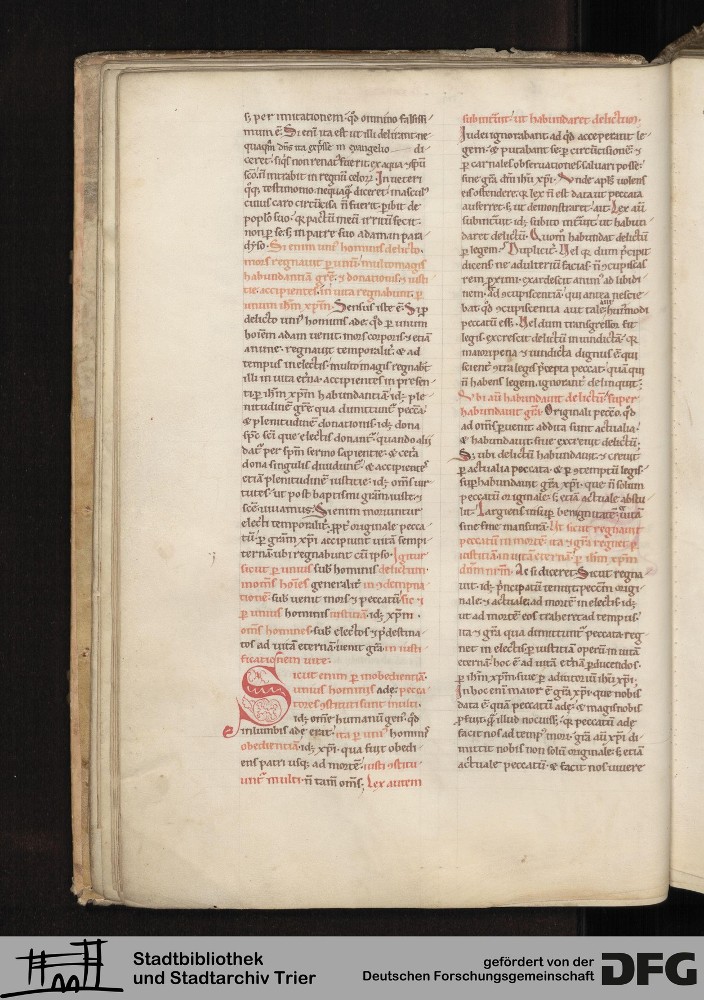 s; per imitationem. qd omnino falsissi
mum ē. Si eni ita est ut illi delirant. ne
quaqm dns ita exp̄sse in evangelio di
ceret. siqs non renat' fuerit ex aqua & spu
sco. n̄ intrabit in regnū celoꝝ. In veteri
qoq; testimonio. nequaq̄ diceret. mascul'
cuius caro circūcisa n̄ fuerit. pibit de
poplo suo. qꝫ pactū meū irritū fecit.
non p se. s; in patre suo adam in para
dyso. Si enim uni' hominis delicto.
mors regnauit p unū. multo magis
habundantiā grē. & donationis. & iusti
tie. accipientes. in uita regnabunt. p
unum ihm xpm. Sensus iste ē. Si p
delicto uni' hominis ade. qd p unum
hoiem adam uenit. mors corporis & etiā
anime. regnauit temporalit̄. & ad
tempus in electis. multo magis regnabt̄
illi in uita etna. accipientes in presen
ti p ihm xpm habundantiā. id; ple
nitudinē grē qua dimittunt̄ peccā.
& plenitudinē donationis. id; dona
sps sci que electis donant̄. quando alii
dat̄ per spm sermo sapientie. & cetā
dona singulis diuidunt̄. & accipientes
etiā plenitudinē iustitie. id; oms uir
tutes. ut post baptismi grām iuste. &
sce uiuamus. Si enim moriuntur
electi temporalit̄. ppt̄ originale pecca
tū. p gram xpi accipiunt uitā sempi
ternā. ubi regnabunt cū ipso. Igitur
sicut p unius sub; hominis delictum.
in oms hoies generalit̄ in condempna
tione. sub; uenit mors & peccatū. sic &
p unius hominis iustitiam. id; xpm.
oms homines. sub; electos & pdestina
tos ad uitā eternā. uenit gra. in iusti
ficationem uite.
Sicut enim p inobedientiā
unius hominis ade. pecca
tores constituti sunt multi.
id; ome humanū gen'. qd
in lumbis ade erat. ita p uni' hominis
obedientiā. id; xpi. qua fuit obedi
ens patri usq; ad mortē. iusti constitu
unt̄ multi. n̄ tam oms. Lex autem
subintrāt. ut habundaret delictum.
Iudei ignorabant ad qd acceperant le
gem. & putabant se p circūcisionē. &
p carnales obseruationes saluari posse.
sine gra. dni ihu xpi. Unde apls uolens
eis ostendere. qꝫ lex n̄ est data ut peccata
auferret. s; ut demonstraret. ait. Lex aū
subintūit. id; subito intūit. ut habun
daret delictū. Quom habundat delictū
p legem. Duplicit̄. Vel qꝫ dum pcipit
dicens. ne adulteriū facias. n̄ concupiscas
rem pximi. exardescit anim' ad libidi
nem. & ad concupiscentiā. qui antea nescie
bat qd concupiscentia aut talis. huismodi
peccatū esst̄. Vel dum transgressor fit
legis. excrescit delictū in uindictā. qꝫ
maiori pena. & uindicta dignus ē qui
scient̄ contra legis pcepta peccat. quā qui
n̄ habens legem. ignorant̄ delinquit.
Ubi aū habundauit delictū. super
habundauit grā. Originali peccō. qd
ad oms puenit. addita sunt actualia.
& habundauit. siue excreuit delictū.
S; ubi delictū habundauit. & creuit
p actualia peccata. & p contemptū legis.
suphabundauit gra xpi. que n̄ solum
peccatū originale. s; etiā actuale abstu
lit. Largiens insup benignitatē. & uitā
sine fine mansurā. Ut sicut regnauit
peccatū in mortē. ita & gra regnet p
iustitiā in uitā eternā. p ihm xpm
dom nrm. Ac si diceret. Sicut regna
uit. id; pncipatū tenuit peccm origi
nale. & actuale. ad mortē in electis. id;
ut ad mortē eos traheret ad tempus.
ita & gra qua dimittunt̄ peccata. reg
net in electis. p iustitiā operū in uitā
eternā. hoc ē ad uitā etnā pducendos.
p ihm xpm. siue p adiutoriū ihu xpi.
In hoc eni maior ē gra xpi. que nobis
data ē. quā peccatū ade. & magis nobis
pfuit. q̄ illud nocuiss;. qꝫ peccatū ade
facit nos ad temp' mori. gra aū xpi. di
mittit nobis non solū originale. s; etiā
actuale peccatū. & facit nos uiuere
Stadtbibliothek
und Stadtarchiv Trier
gefördert von der
Deutschen Forschungsgemeinschaft
DFG